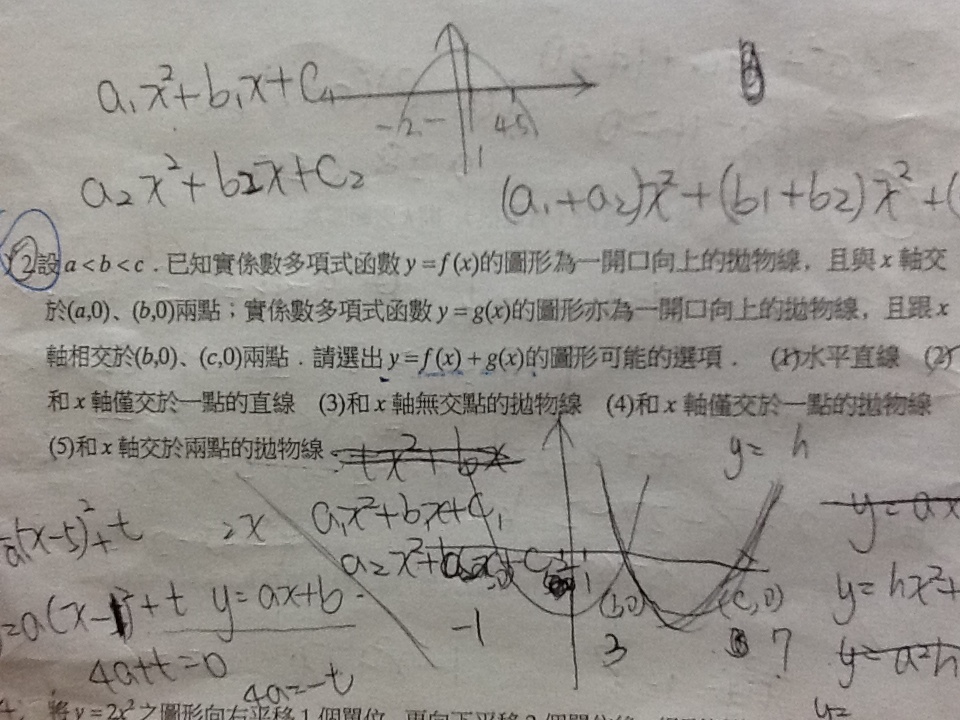 a₁x²+b₁x+C₁
-2
4.5
1
a₂x²+b₂x+C₂
(a₁+a₂)x²+(b1+b2)x²+(
2設 a<b<c．已知實係數多項式函數 y=f(x)的圖形為一開口向上的拋物線，且與 x 軸交
於(a,0)、(b,0)兩點；實係數多項式函數 y=g(x)的圖形亦為一開口向上的拋物線，且跟 x
軸相交於(b,0)、(c,0)兩點．請選出 y=f(x)+g(x)的圖形可能的選項． (1)水平直線 (2)
和 x 軸僅交於一點的直線 (3)和 x 軸無交點的拋物線 (4)和 x 軸僅交於一點的拋物線
(5)和 x 軸交於兩點的拋物線
y= h
a(x-5)²+t
=x
a₁x²+b₁x+C₁
y=ax
a₂x²+
1
=a(x-1)²+t
y=ax+b
(b,0)
(c,0)
y=hx²+
-1
3
7
4a+t=0
4a=-t
y=
將 y=2x² 之圖形向右平移 1 個單位，再向下平移